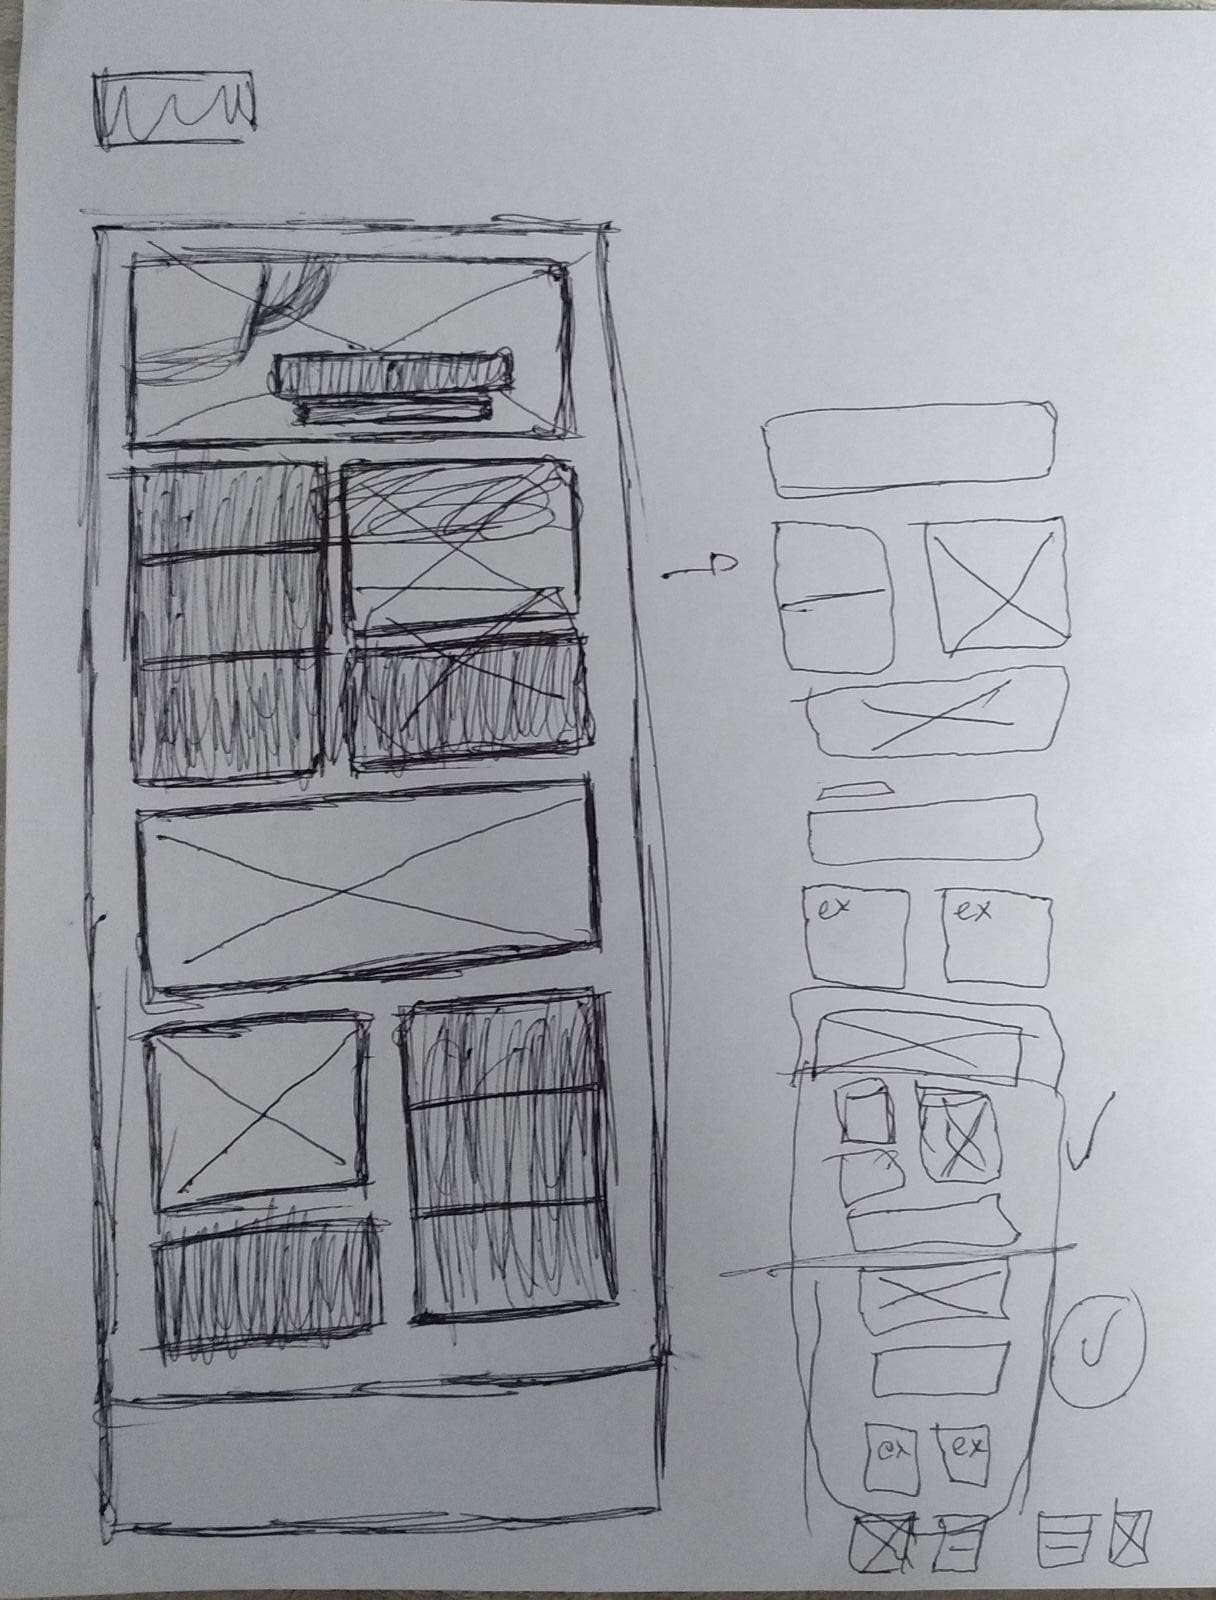 ex ex
ex ex